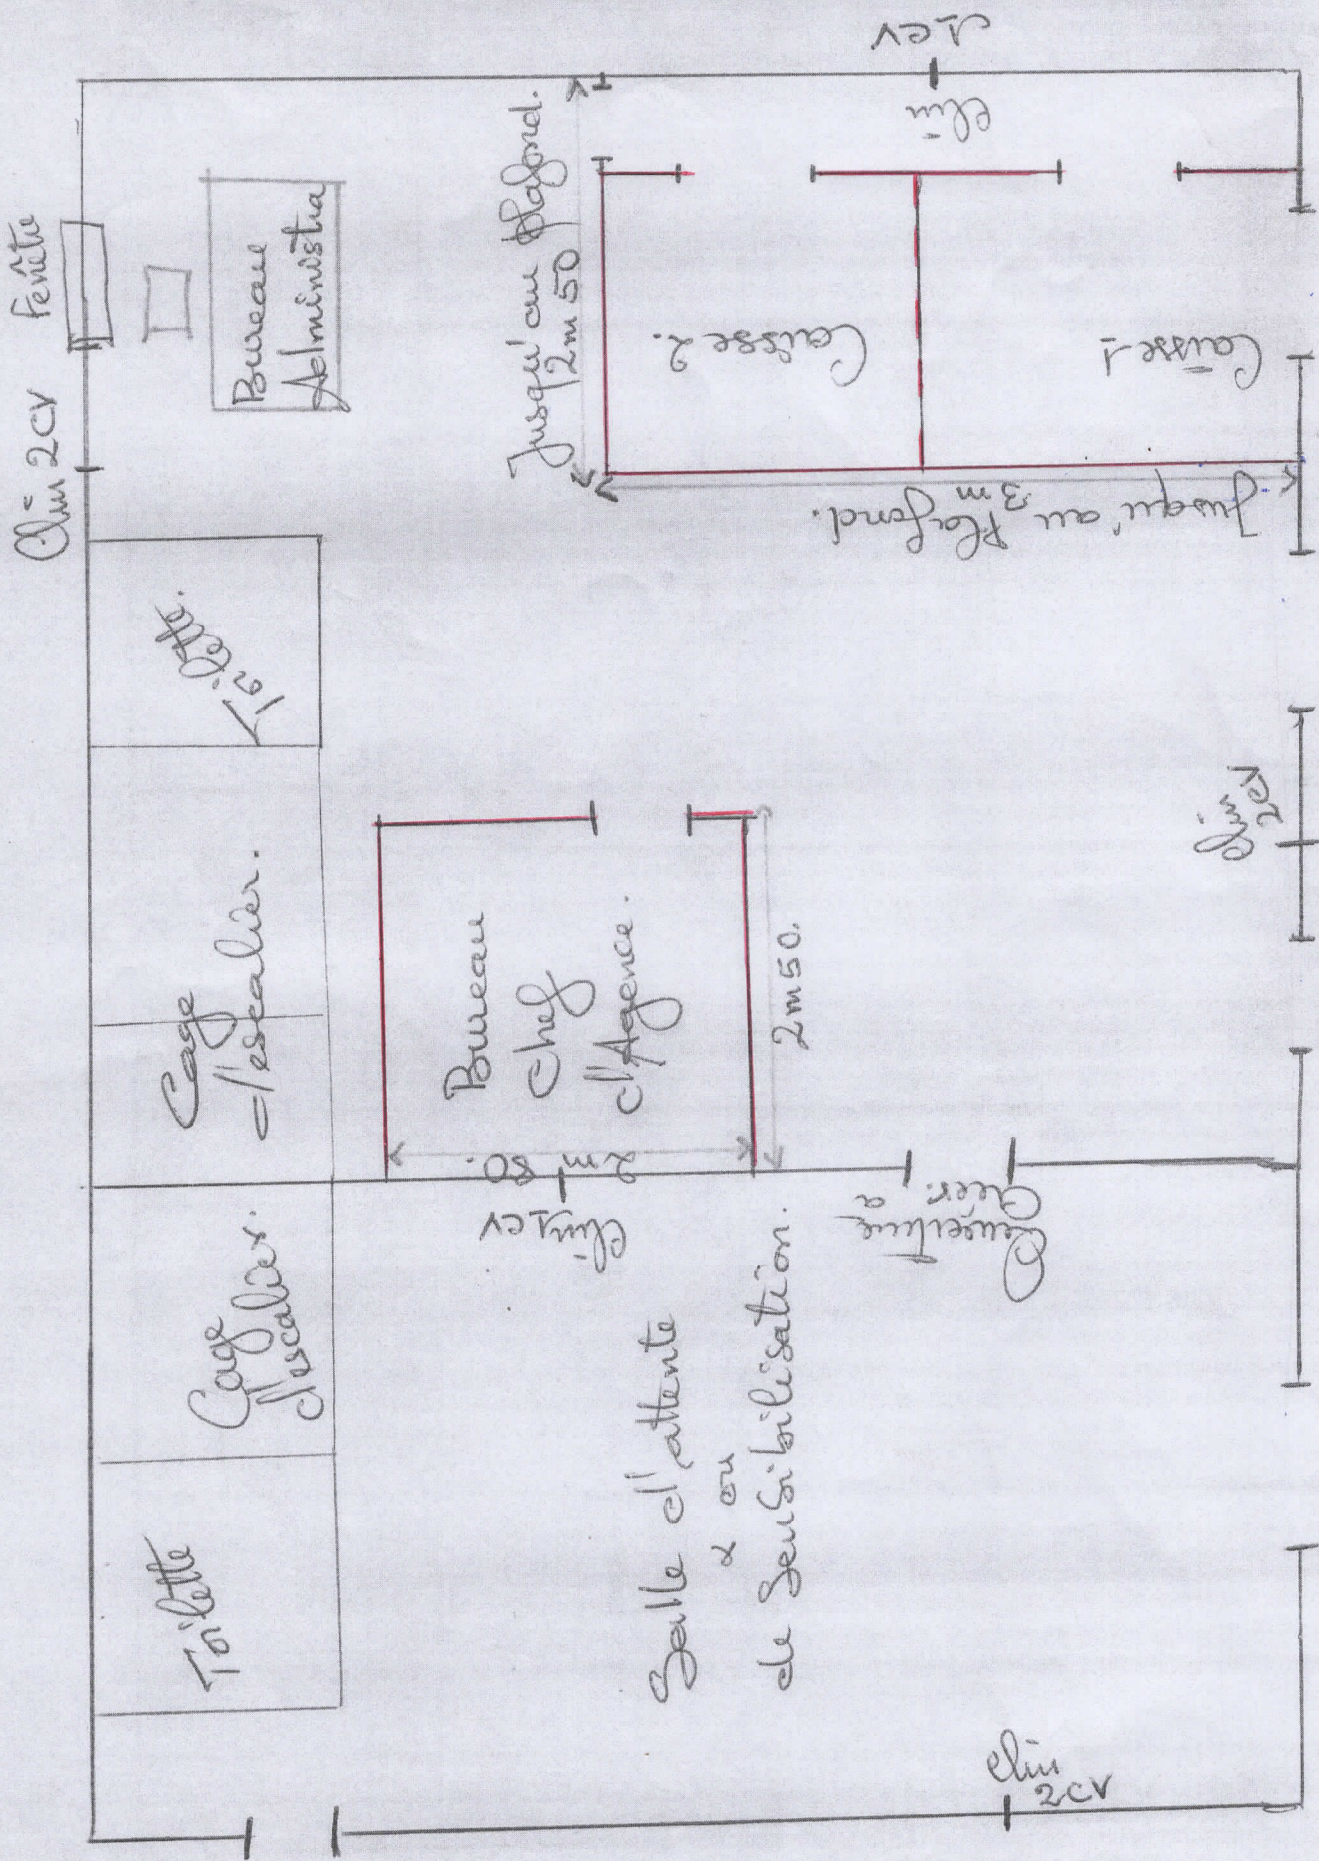 Clim 2CV Fenêtre
Bureau
Administra
Toilette.
Cage
d'escalier.
Cage
d'escalier.
Toilette
Jusqu'au Plafond.
2m50
Caisse 2.
Caisse 1
Jusqu'au Plafond.
3m
Clim
1CV
Bureau
Chef
d'Agence.
2m50.
2m80.
Clim 1CV
Clim
2CV
Ouverture
a
Salle d'attente
& ou
de Sensibilisation.
Clim
2CV